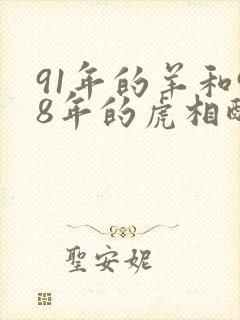 91年的羊和
8年的虎相
聖安妮